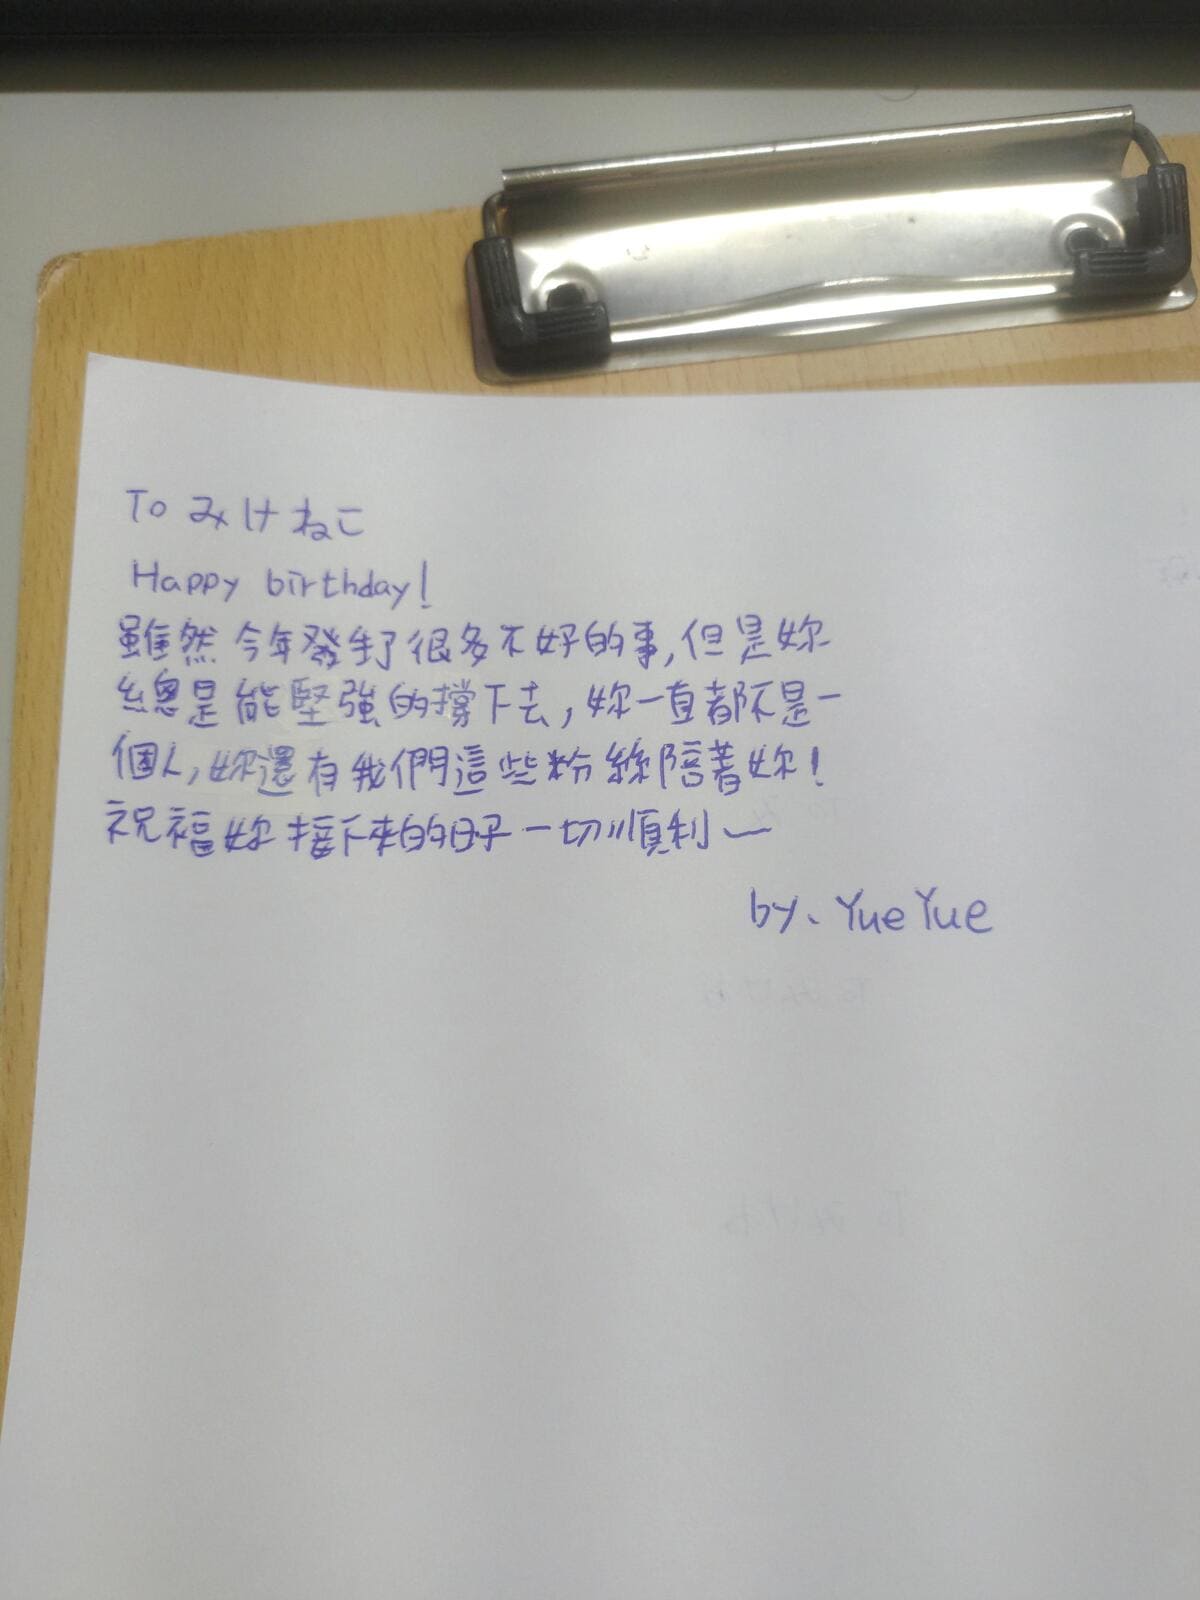 To みけねこ
Happy birthday!
雖然今年發生了很多不好的事,但是妳
總是能堅強的撐下去,妳一直都不是一
個人,妳還有我們這些粉絲陪著妳!
祝福妳接下來的日子一切順利~
by、YueYue